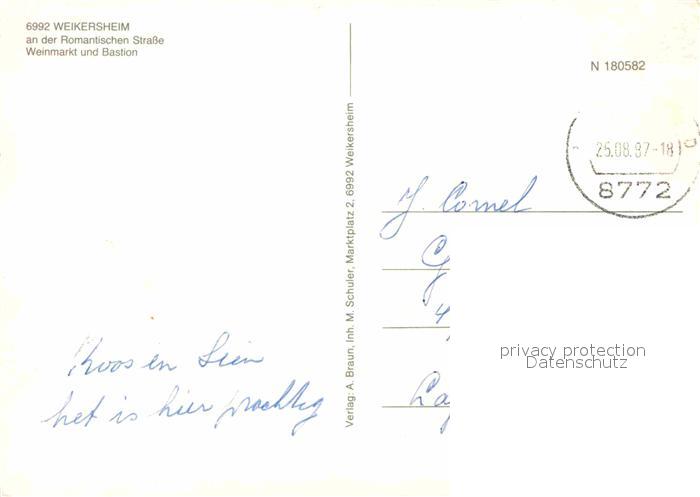 6992 WEIKERSHEIM
an der Romantischen Straße
Weinmarkt und Bastion
N 180582
25.08.87-18
8772
Verlag: A. Braun, Inh. M. Schuler, Marktplatz 2, 6992 Weikersheim
J. Cornel
privacy protection
Datenschutz
Koos en Sien
het is hier prachtig